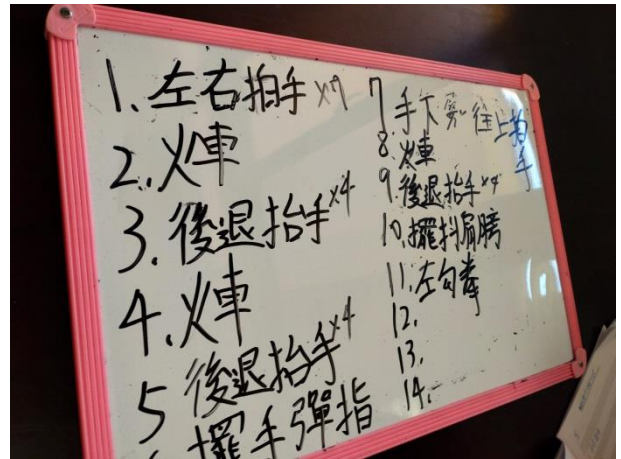 1. 左右拍手 x7
2. 火車
3. 後退抬手 x4
4. 火車
5 後退抬手 x4
擺手彈指
7. 手下 往上拍手
8. 火車
9. 後退抬手 x4
10. 擺抖肩膀
11. 左勾拳
12.
13.
14.